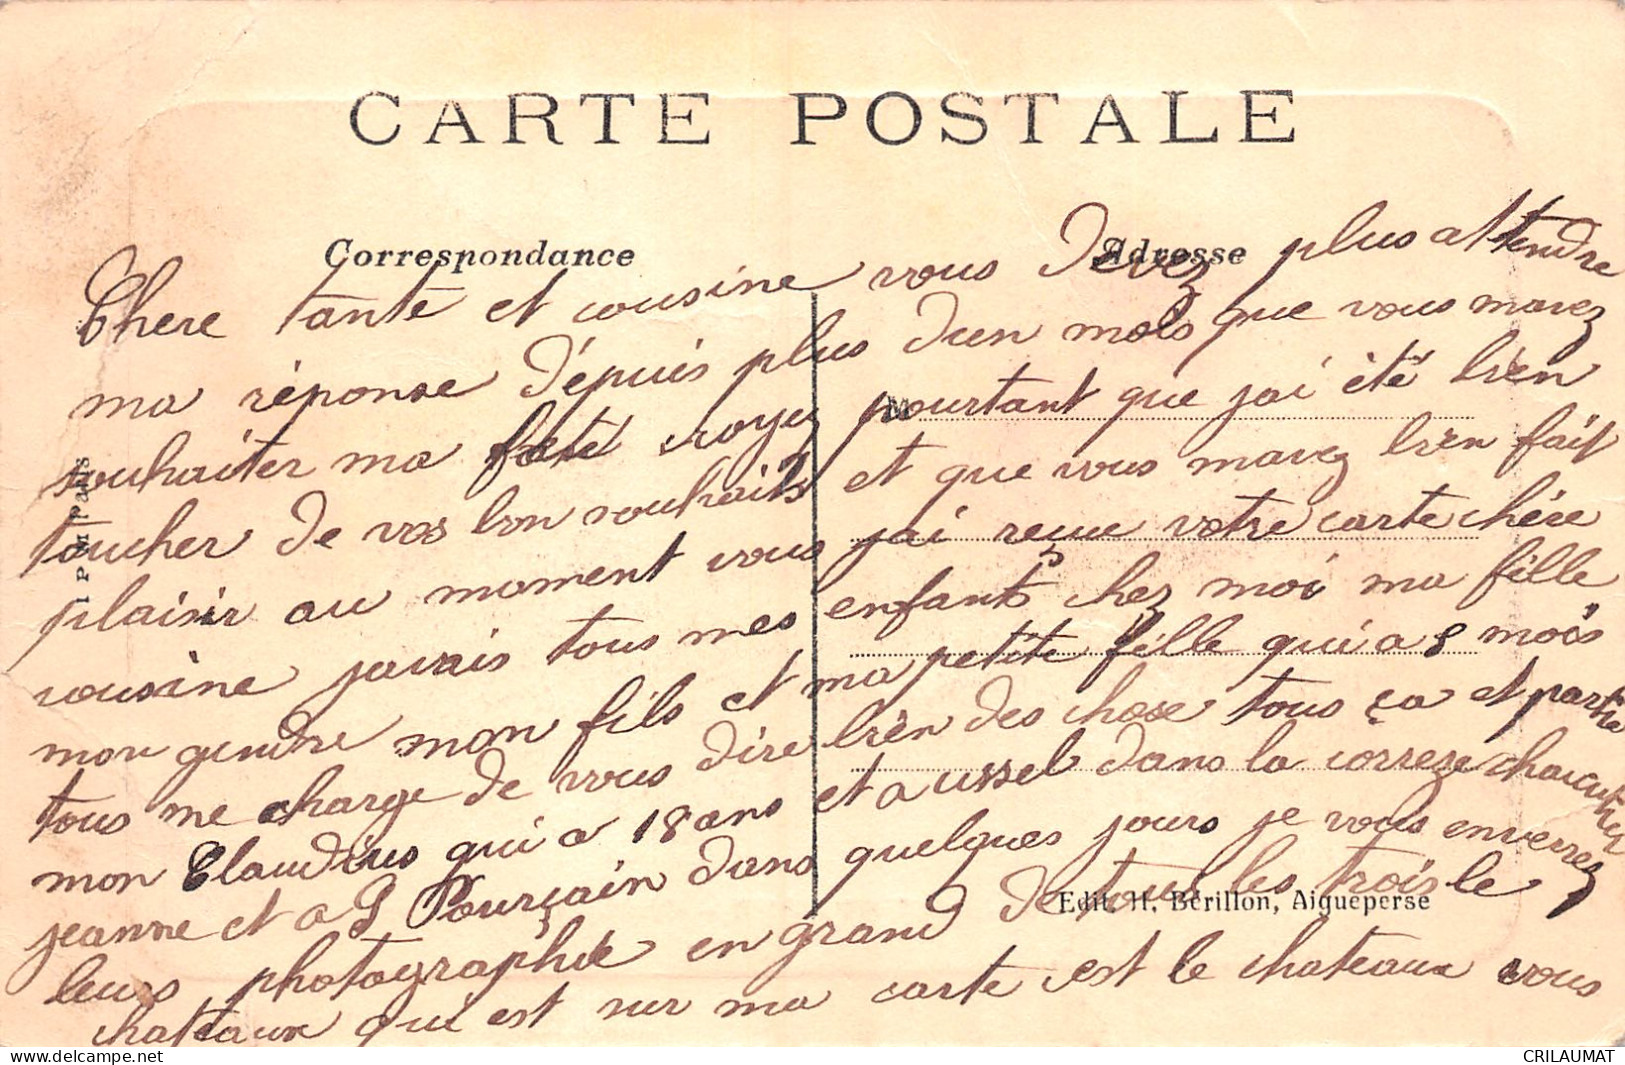 CARTE POSTALE
Correspondance
Adresse
Chere tante et cousine vous Devez plus attendre
ma réponse dépuis plus dun mois que vous mavez
souhaiter ma fete croyez pourtant que jai été bien
toucher de vos bon souhaits et que vous mavez bien fait
plaisir au moment vous jai reçue votre carte chére
cousine javais tous mes enfants chez moi ma fille
mon gendre mon fils et ma petite fille qui a 8 mois
tous me charge de vous dire bien des chose tous ça et partie
mon Claudius qui a 18 ans et a ussel dans la correze
jeanne et a S Pourçain dans quelques jours je vous enverrez
leurs photographie en grand de tous les trois le
chateaux qui est sur ma carte est le chateaux vous
I P M Paris
Edit. H. Bérillon, Aigueperse
M
CRILAUMAT